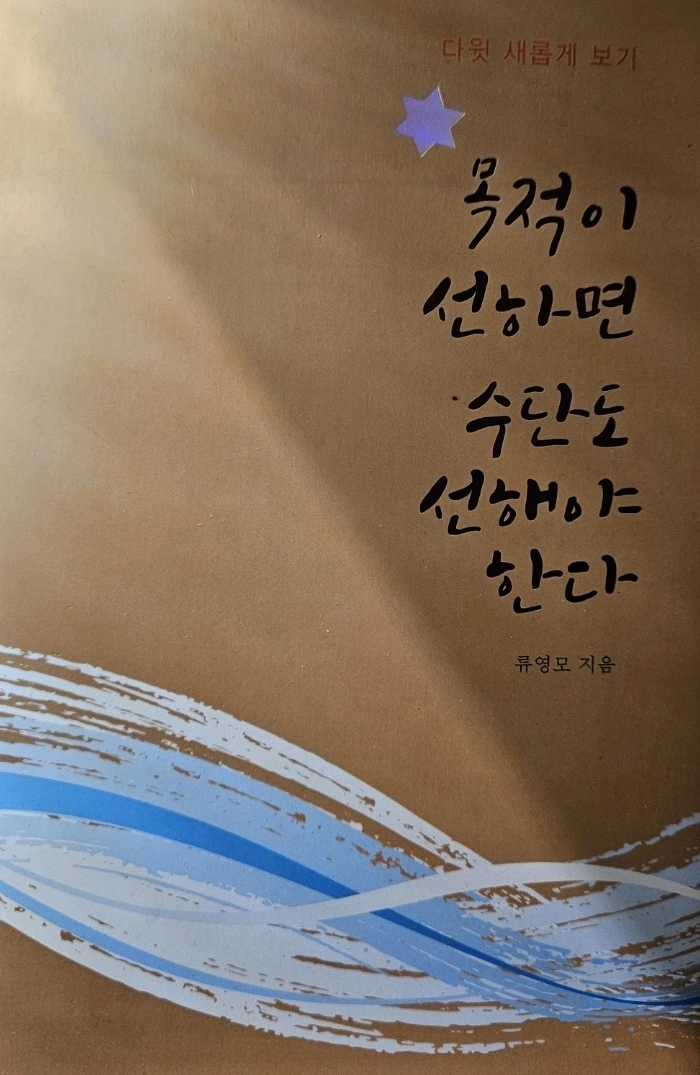 다윗 새롭게 보기
목적이
선하면
수단도
선해야
한다
류영모 지음